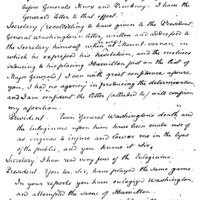 fore Generals Knox and Pinckney. I have the
General's letter to that effect."
Secretary (recollecting to have given to the President
General Washington's letter, written and addressed to
the Secretary himself upon at Mount Vernon, in
which he expressed his satisfaction, and the motives
inducing to his placing Hamilton first on the list of
Major Generals) I can with great confidence assure
you, I had no agency in producing the determination
and I am confident the letter (alluded to) will confirm
my assertion.
President. Even General Washington's death and
the eulogiums upon him have been made use of
as engines to injure and lower me in the eyes
of the public, and you know it Sir,
Secretary. I have read very few of the Eulogiums.
President. You too, Sir, have played the same game.
In your reports you have eulogized Washington,
and attempted the crown of Hamilton